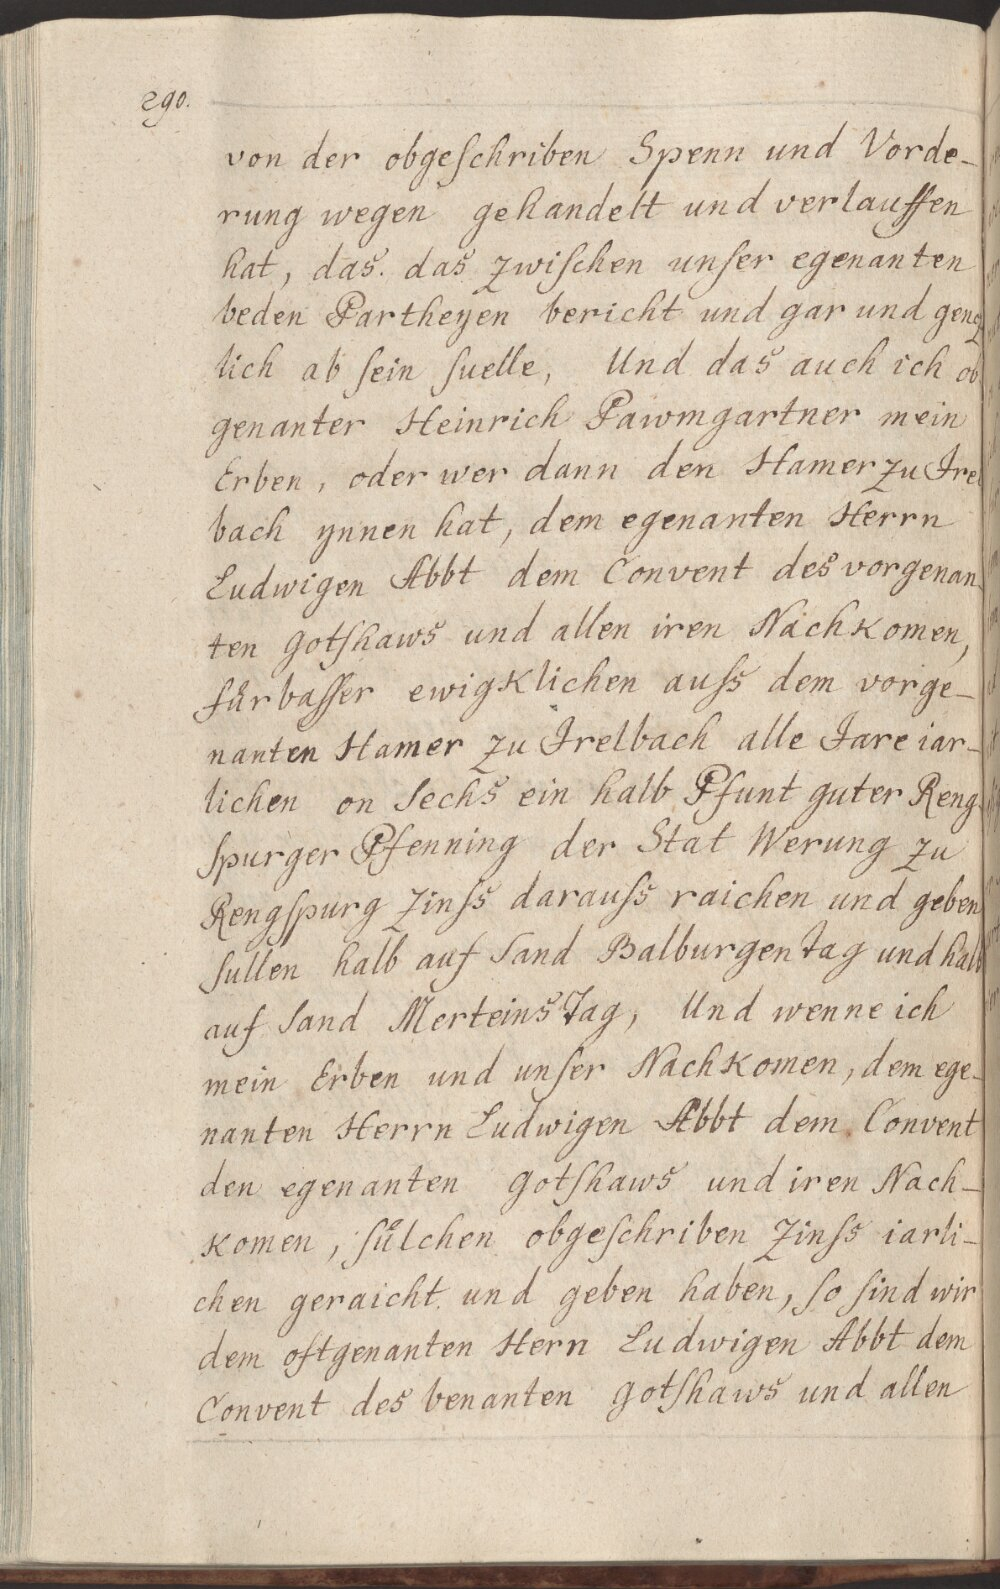 290.
von der obgeſchriben Spenn und Vorde-
rung wegen gehandelt und verlauffen
hat, das. das zwiſchen unſer egenanten
beden Partheyen bericht und gar und gencz
lich ab ſein ſuelle, Und das auch ich ob
genanter Heinrich Pawmgartner mein
Erben, oder wer dann den Hamer zu Irel
bach ynnen hat, dem egenanten Herrn
Ludwigen Abbt dem Convent des vorgenan
ten Gotſhaws und allen iren Nachkomen,
fůrbaſſer ewigklichen auſs dem vorge-
nanten Hamer zu Irelbach alle Jare iar-
lichen on Sechs ein halb Pfunt guter Reng
ſpurger Pfenning der Stat Werung zu
Rengſpurg Zinſs darauſs raichen und geben
ſullen halb auf Sand Balburgen tag und halb
auf Sand Merteins Tag, Und wenne ich
mein Erben und unſer Nachkomen, dem ege-
nanten Herrn Ludwigen Abbt dem Convent
den egenanten Gotſhaws und iren Nach-
komen, ſůlchen obgeſchriben Zinſs iarli-
chen geraicht und geben haben, ſo ſind wir
dem oftgenanten Hern Ludwigen Abbt dem
Convent des benanten Gotſhaws und allen